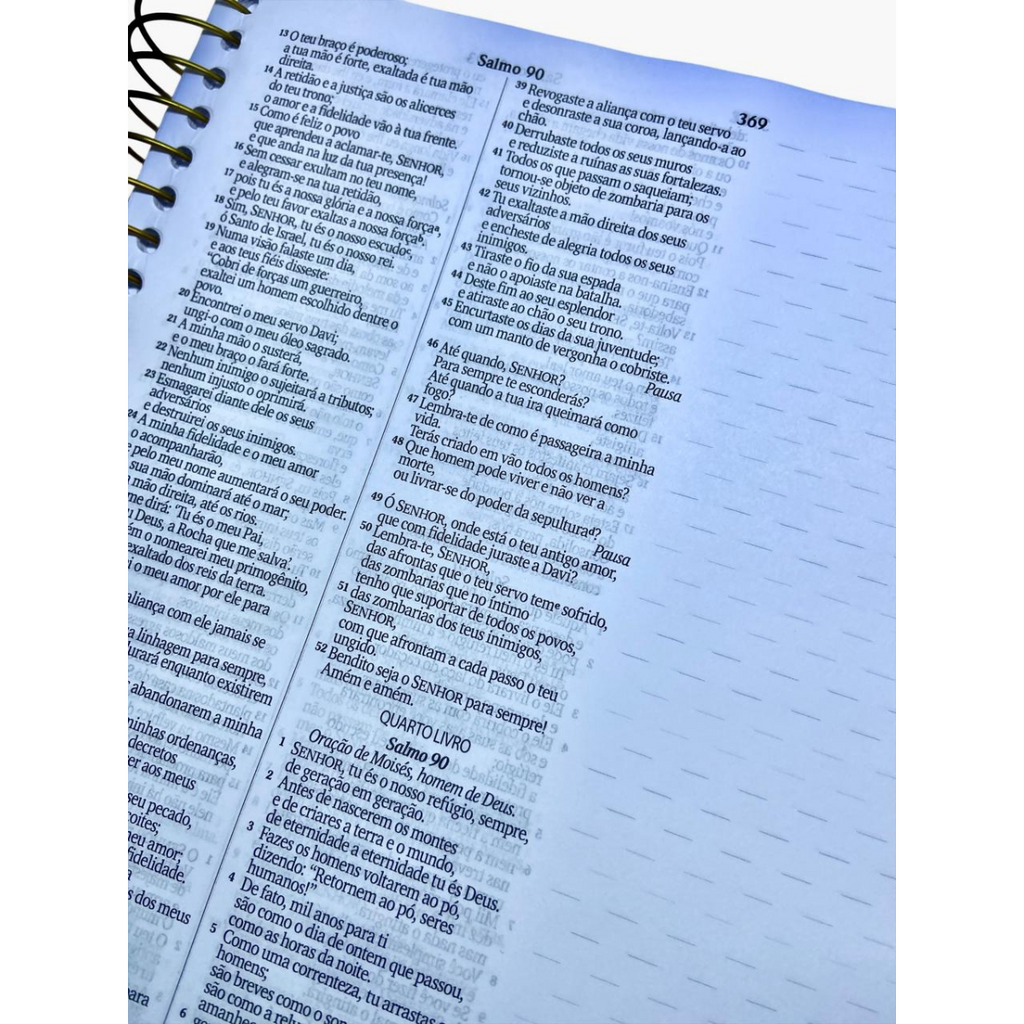 Salmo 90
369
13 O teu braço é poderoso;
a tua mão é forte, exaltada é tua mão
direita.
14 A retidão e a justiça são os alicerces
do teu trono;
o amor e a fidelidade vão à tua frente.
15 Como é feliz o povo
que aprendeu a aclamar-te, SENHOR,
e que anda na luz da tua presença!
16 Sem cessar exultam no teu nome,
e alegram-se na tua retidão,
17 pois tu és a nossa glória e a nossa forçaª,
e pelo teu favor exaltas a nossa forçaᵇ.
18 Sim, SENHOR, tu és o nosso escudoᶜ,
ó Santo de Israel, tu és o nosso rei.
19 Numa visão falaste um dia,
e aos teus fiéis disseste:
"Cobri de forças um guerreiro,
exaltei um homem escolhido dentre o
povo.
20 Encontrei o meu servo Davi;
ungi-o com o meu óleo sagrado.
21 A minha mão o susterá,
e o meu braço o fará forte.
22 Nenhum inimigo o sujeitará a tributos;
nenhum injusto o oprimirá.
23 Esmagarei diante dele os seus
adversários
e destruirei os seus inimigos.
24 A minha fidelidade e o meu amor
o acompanharão,
e pelo meu nome aumentará o seu poder.
sua mão dominará até o mar,
mão direita, até os rios.
me dirá: 'Tu és o meu Pai,
Deus, a Rocha que me salva'.
o nomearei meu primogênito,
exaltado dos reis da terra.
o meu amor por ele para
aliança com ele jamais se
linhagem para sempre,
durará enquanto existirem
abandonarem a minha
minhas ordenanças,
decretos
aos meus
seu pecado,
meu amor;
fidelidade.
dos meus
para
39 Revogaste a aliança com o teu servo
e desonraste a sua coroa, lançando-a ao
chão.
40 Derrubaste todos os seus muros
e reduziste a ruínas as suas fortalezas.
41 Todos os que passam o saqueiam;
tornou-se objeto de zombaria para os
seus vizinhos.
42 Tu exaltaste a mão direita dos seus
adversários
e encheste de alegria todos os seus
inimigos.
43 Tiraste o fio da sua espada
e não o apoiaste na batalha.
44 Deste fim ao seu esplendor
e atiraste ao chão o seu trono.
45 Encurtaste os dias da sua juventude;
com um manto de vergonha o cobriste.
Pausa
46 Até quando, SENHOR?
Para sempre te esconderás?
Até quando a tua ira queimará como
fogo?
47 Lembra-te de como é passageira a minha
vida.
Terás criado em vão todos os homens?
48 Que homem pode viver e não ver a
morte,
ou livrar-se do poder da sepulturaᵈ?
Pausa
49 Ó SENHOR, onde está o teu antigo amor,
que com fidelidade juraste a Davi?
50 Lembra-te, SENHOR,
das afrontas que o teu servo temᵉ sofrido,
das zombarias que no íntimo
tenho que suportar de todos os povos,
51 das zombarias dos teus inimigos,
SENHOR,
com que afrontam a cada passo o teu
ungido.
52 Bendito seja o SENHOR para sempre!
Amém e amém.
QUARTO LIVRO
Salmo 90
Oração de Moisés, homem de Deus.
1 SENHOR, tu és o nosso refúgio, sempre,
de geração em geração.
2 Antes de nascerem os montes
e de criares a terra e o mundo,
de eternidade a eternidade tu és Deus.
3 Fazes os homens voltarem ao pó,
dizendo: "Retornem ao pó, seres
humanos!"
4 De fato, mil anos para ti
são como o dia de ontem que passou,
como as horas da noite.
5 Como uma correnteza, tu arrastas
homens;
são breves como o
são como a
6